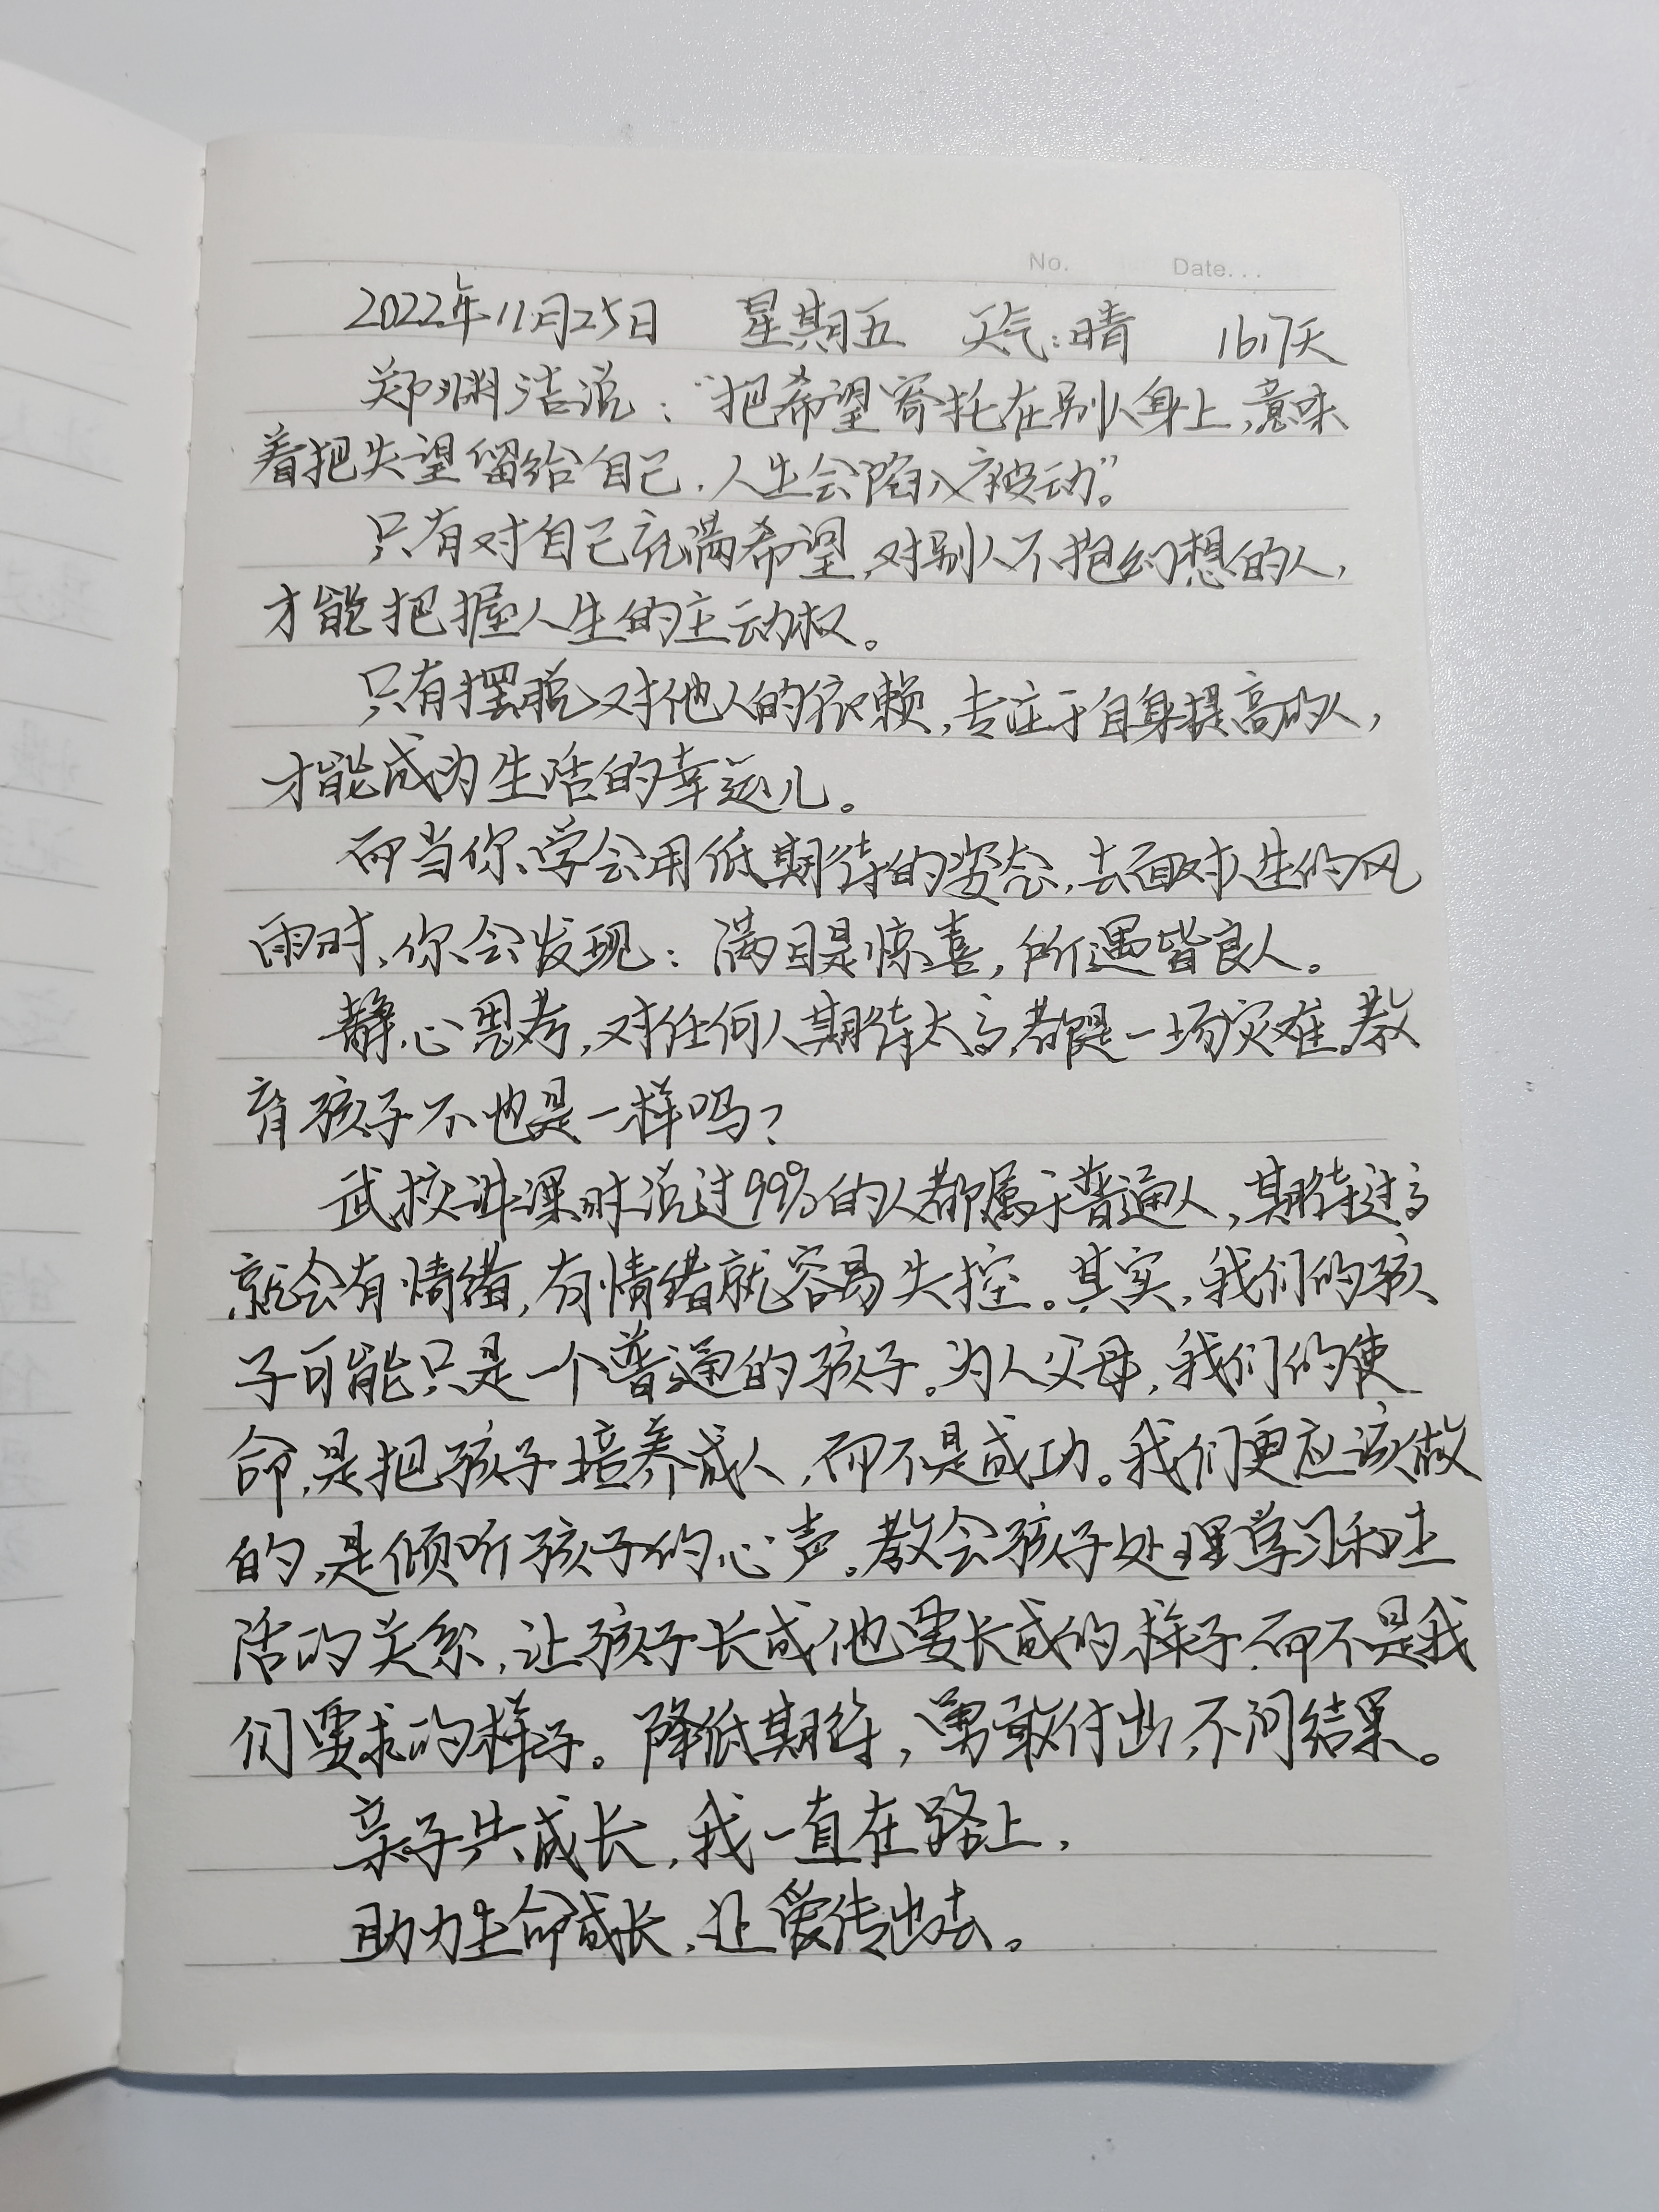 No. Date...
2022年11月25日 星期五 天气:晴 1617天
郑渊洁说:“把希望寄托在别人身上,意味
着把失望留给自己,人生会陷入被动”。
只有对自己充满希望,对别人不抱幻想的人,
才能把握人生的主动权。
只有摆脱对他人的依赖,专注于自身提高的人,
才能成为生活的幸运儿。
而当你学会用低期待的姿态,去面对人生的风
雨时,你会发现:满目是惊喜,所遇皆良人。
静心思考,对任何人期待太高,都是一场灾难。教
育孩子不也是一样吗?
武校讲课时说过99%的人都属于普通人,期待过高
就会有情绪,有情绪就容易失控。其实,我们的孩
子可能只是一个普通的孩子。为人父母,我们的使
命,是把孩子培养成人,而不是成功。我们更应该做
的,是倾听孩子的心声。教会孩子处理学习和生
活的关系,让孩子长成他要长成的样子,而不是我
们要求的样子。降低期待,勇敢付出,不问结果。
亲子共成长,我一直在路上,
助力生命成长,让爱传出去。